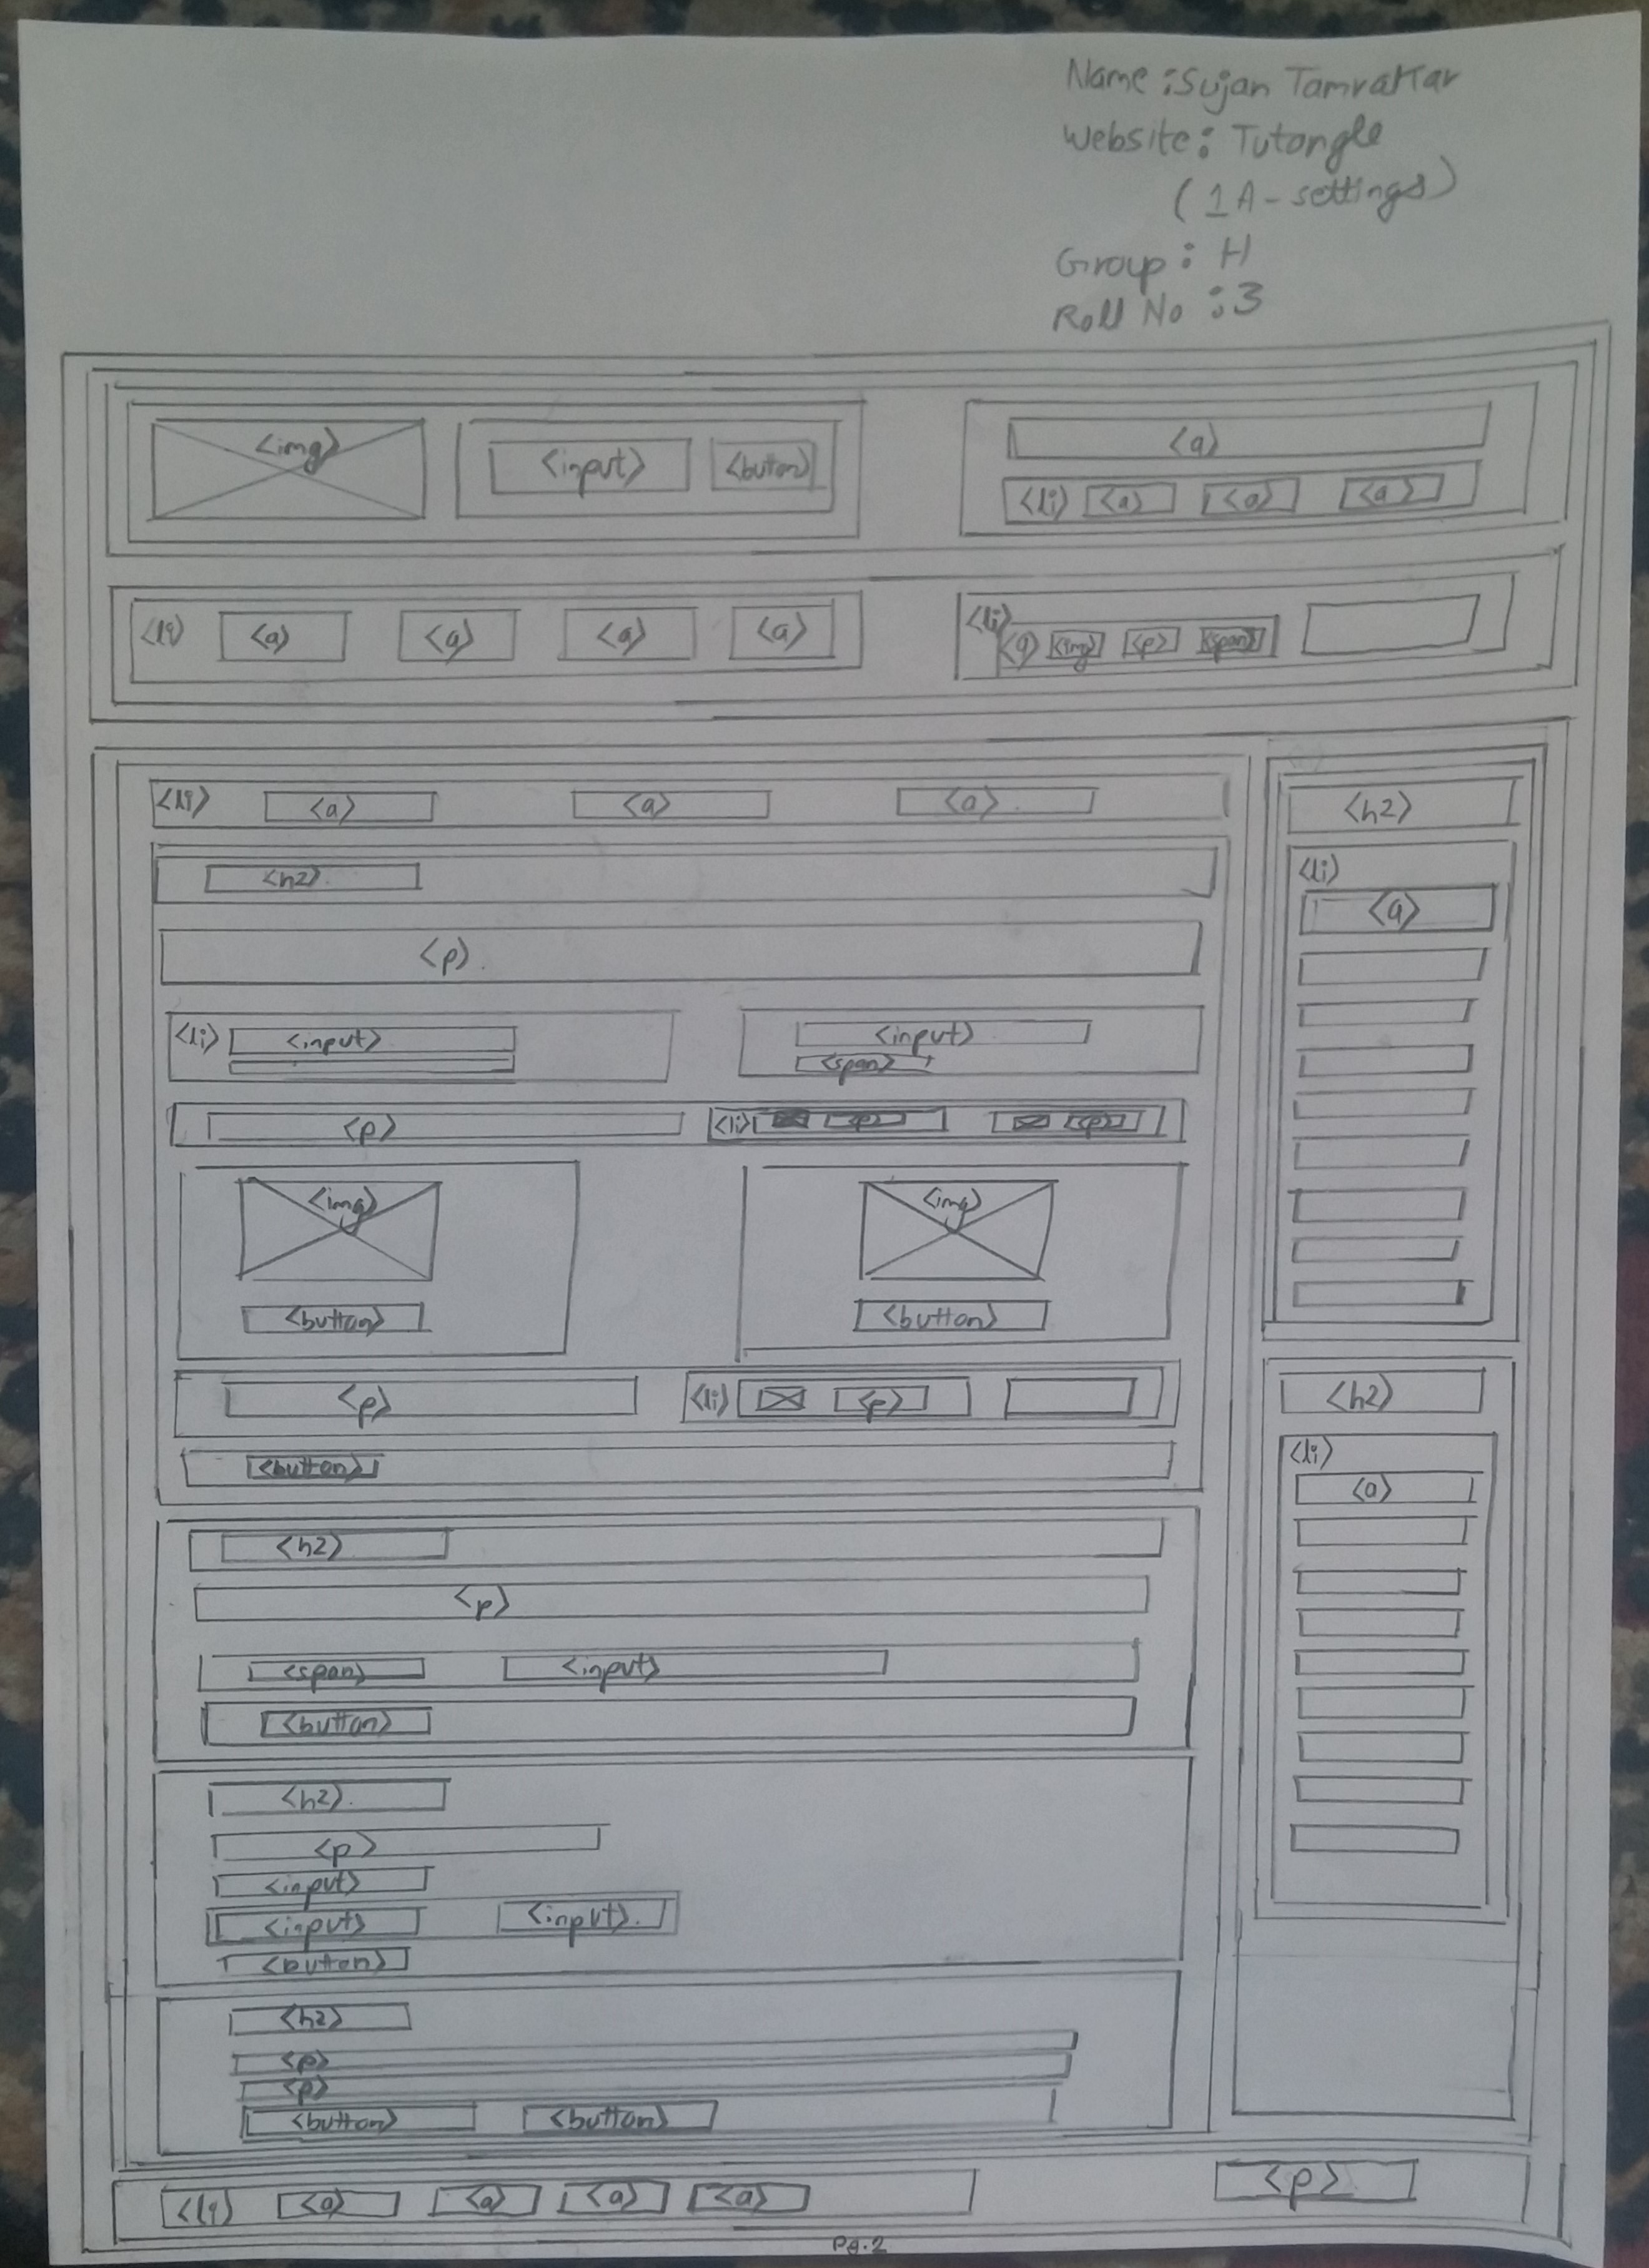 Name : Sujan Tamrakar
Website : Tutongle
(1A - settings)
Group : H
Roll No : 3
<img> <input> <button> <a>
<li> <a> <a> <a>
<li> <a> <a> <a> <a> <li>
<a> <img> <p> <span>
<li> <a> <a> <a>
<h2>
<p>
<li> <input> <input>
<span>
<p> <li> <p> <p>
<img> <img>
<button> <button>
<p> <li> <p>
<button>
<h2>
<p>
<span> <input>
<button>
<h2>
<p>
<input>
<input> <input>
<button>
<h2>
<p>
<p>
<button> <button>
<h2>
<li>
<a>
<h2>
<li>
<a>
<li> <a> <a> <a> <a> <p>
Pg.2